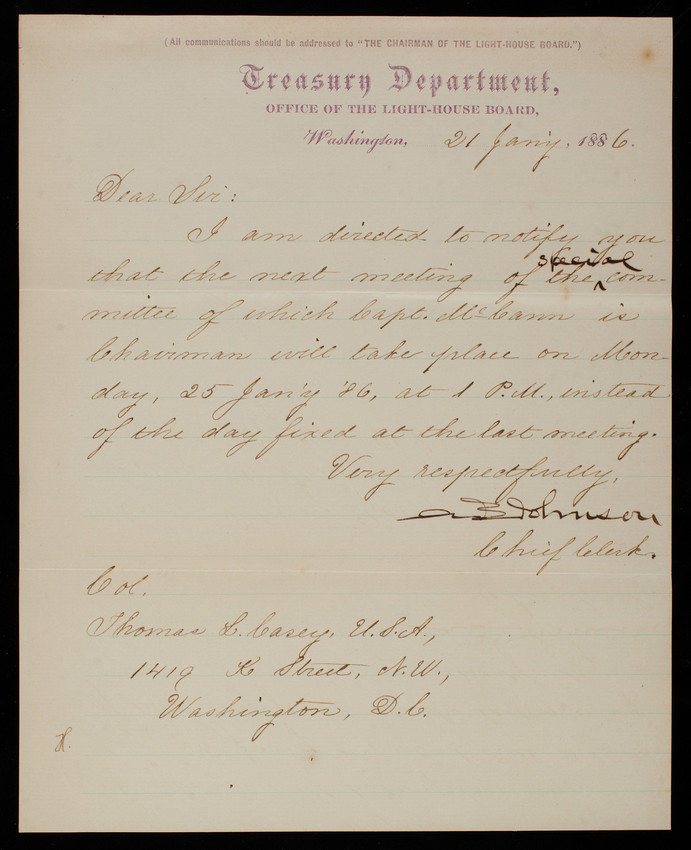 (All communications should be addressed to "THE CHAIRMAN OF THE LIGHT-HOUSE BOARD.")
Treasury Department,
OFFICE OF THE LIGHT-HOUSE BOARD,
Washington, 21 Jan'y, 1886.
Dear Sir:
I am directed to notify you
that the next meeting of the special com-
mittee of which Capt. McCann is
Chairman will take place on Mon-
day, 25 Jan'y '86, at 1 P.M., instead
of the day fixed at the last meeting.
Very respectfully,
A B Johnson
Chief Clerk.
Col.
Thomas L. Casey, U.S.A.,
1419 K Street, N.W.,
Washington, D.C.